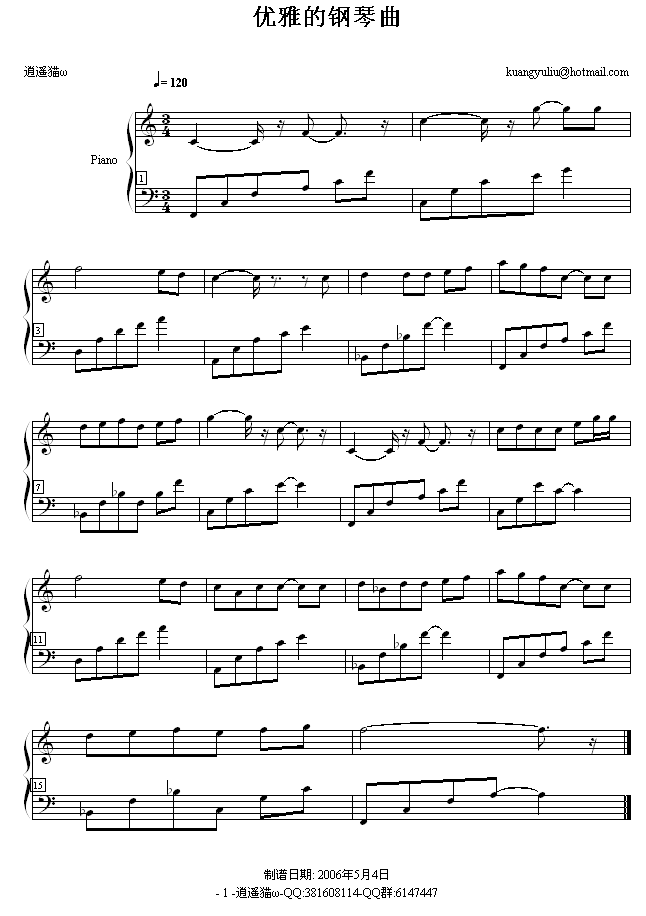 优雅的钢琴曲
逍遥猫ω
kuangyuliu@hotmail.com
♩= 120
Piano
3
4
1
3
4
3
7
11
15
制谱日期: 2006年5月4日
- 1 -逍遥猫ω-QQ:381608114-QQ群:6147447